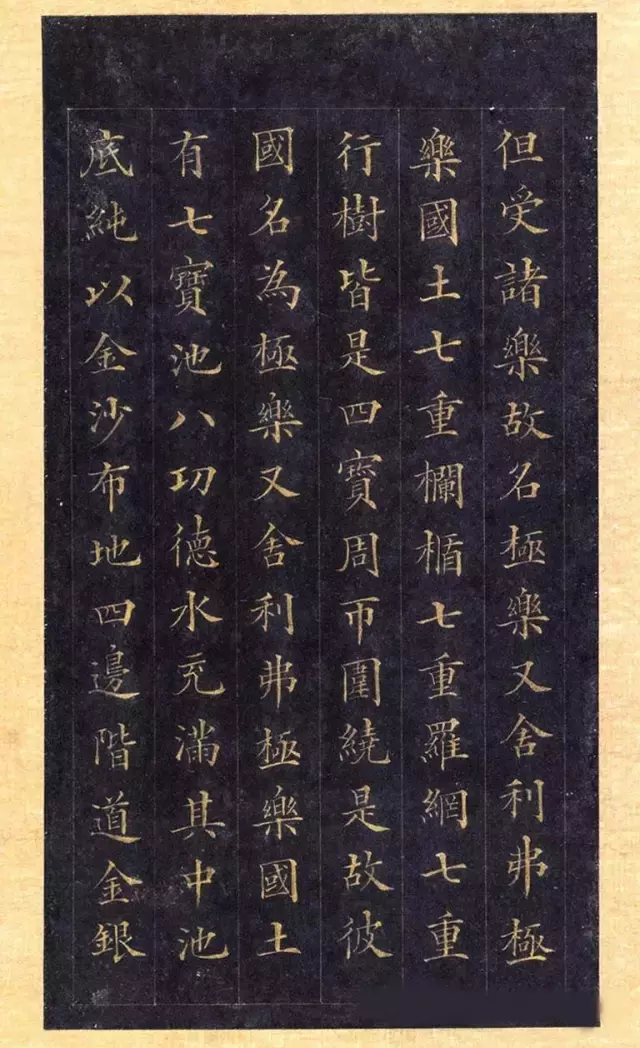 但受諸樂故名極樂又舍利弗極
樂國土七重欄楯七重羅網七重
行樹皆是四寶周帀圍繞是故彼
國名為極樂又舍利弗極樂國土
有七寶池八功德水充滿其中池
底純以金沙布地四邊階道金銀